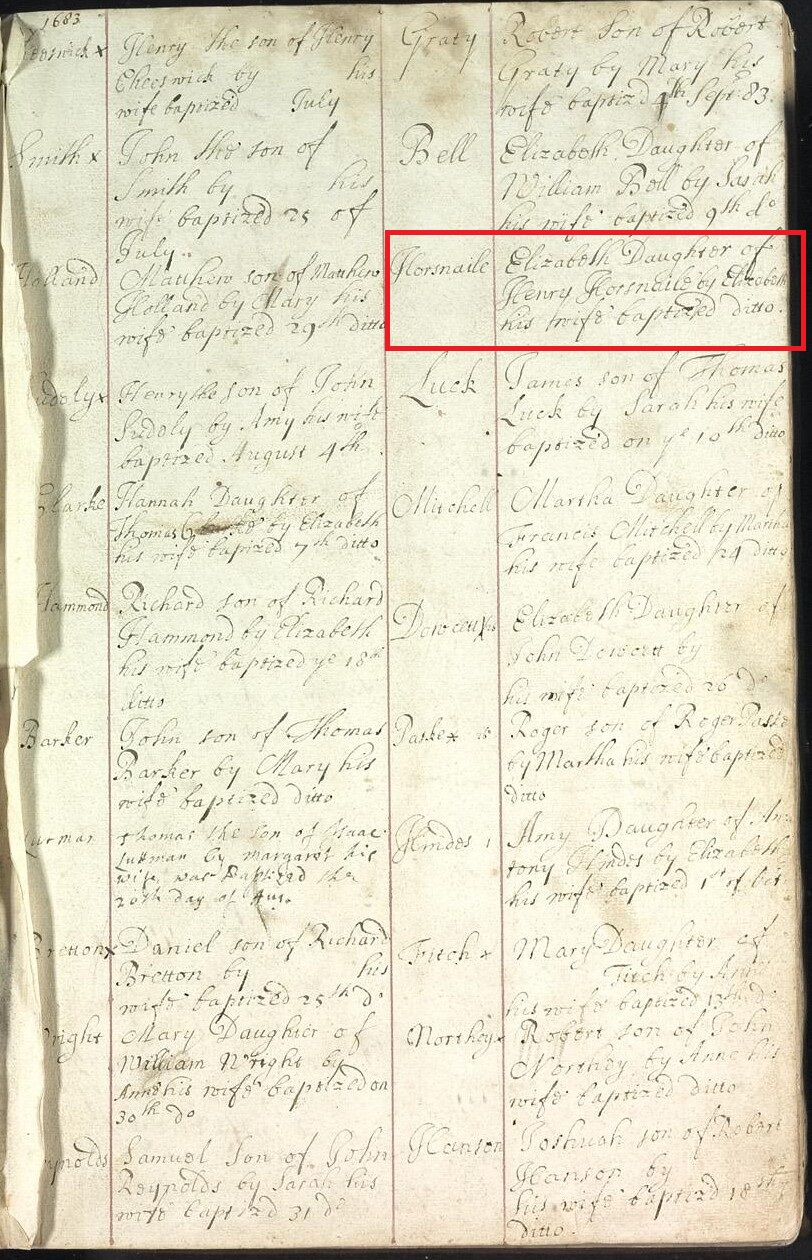 1683
Henry the son of Henry
Cheeswick by his
wife baptized July
Smith x
John the son of
Smith by his
wife baptized 25 of
July
Holland
Matthew son of Matthew
Holland by Mary his
wife baptized 29th ditto
Henry the son of John
Suddly by Amy his wife
baptized August 4th
Clarke
Hannah Daughter of
Thomas by Elizabeth
his wife baptized 7th ditto
Hammond
Richard son of Richard
Hammond by Elizabeth
his wife baptized ye 18th
ditto
Barker
John son of Thomas
Barker by Mary his
wife baptized ditto
Thomas the son of Isaac
Lurman by margaret his
wife was Baptized the
20th day of Aug.
Bretton x
Daniel son of Richard
Bretton by his
wife baptized 25th do
Wright
Mary Daughter of
William Wright by
Anne his wife baptized on
30th do
Reynolds
Samuel Son of John
Reynolds by Sarah his
wife baptized 31 do
Graty
Robert son of Robert
Graty by Mary his
wife baptized 4th Sept: 83
Bell
Elizabeth Daughter of
William Bell by Sarah
his wife baptized 9th do
Horsnaile
Elizabeth Daughter of
Henry Horsnaile by Elizabeth
his wife baptized ditto.
Luck
James son of Thomas
Luck by Sarah his wife
baptized on ye 10th ditto
Mitchell
Martha Daughter of
Francis Mitchell by Martha
his wife baptized 24 ditto
Elizabeth Daughter of
John Dowcett by
his wife baptized 26 do
Paske x
Roger son of Roger Paske
by Martha his wife baptized
ditto
Hindes 1
Amy Daughter of An
tony Hindes by Elizabeth
his wife baptized 1st of
Fitch x
Mary Daughter of
Fitch by Anne
his wife baptized 13th do
Northey x
Robert son of John
Northey by Anne his
wife baptized ditto
Hanson
Joshuah son of Robert
Hanson by
his wife baptized 18th
ditto.